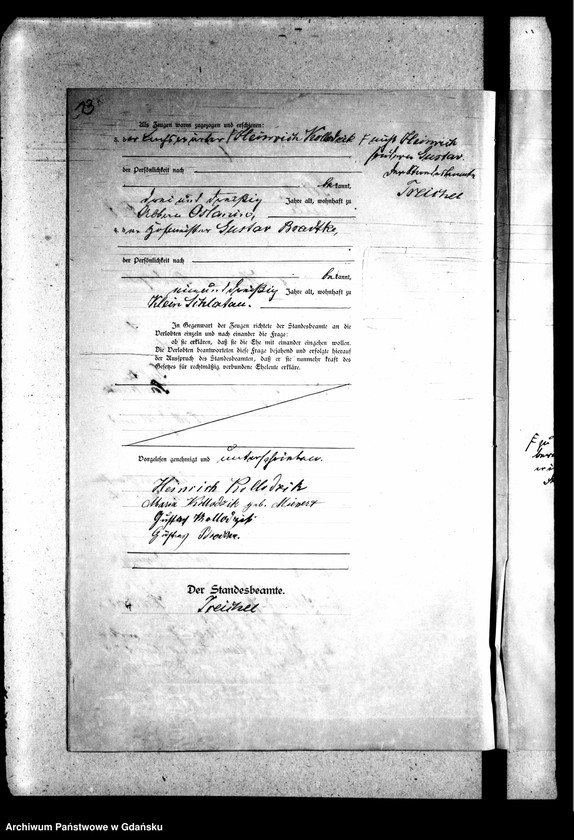 23
Als Zeugen waren zugezogen und erschienen:
3. der Heinrich Kollodzik
F nicht Heinrich
sondern Gustav.
Der Standesbeamte
Treichel
der Persönlichkeit nach
bekannt,
drei und dreißig Jahre alt, wohnhaft zu
Ostarin,
4. der Hofmeister Gustav Boadtke,
der Persönlichkeit nach
bekannt,
neun und dreißig Jahre alt, wohnhaft zu
Klein Schlatau.
In Gegenwart der Zeugen richtete der Standesbeamte an die
Verlobten einzeln und nach einander die Frage:
ob sie erklären, daß sie die Ehe mit einander eingehen wollen.
Die Verlobten beantworteten diese Frage bejahend und erfolgte hierauf
der Ausspruch des Standesbeamten, daß er sie nunmehr kraft des
Gesetzes für rechtmäßig verbundene Eheleute erkläre.
Vorgelesen genehmigt und unterschrieben.
Heinrich Kollodzik
Maria Kollodzik geb. Meinert
Gustav Kollodzik
Gustav
Der Standesbeamte.
Treichel
Archiwum Państwowe w Gdańsku